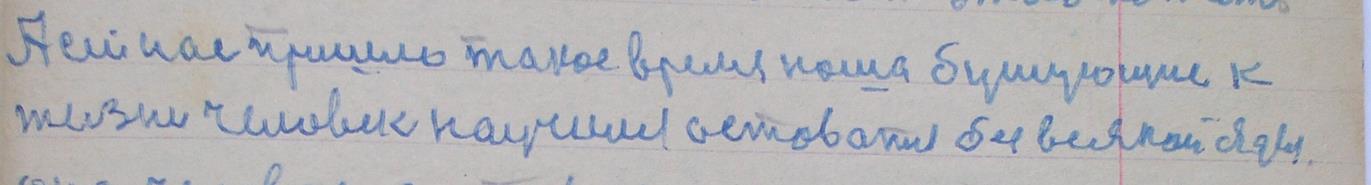 А сейчас пришло такое время наша бушующие к
жизни человек научился оставатся без всякой